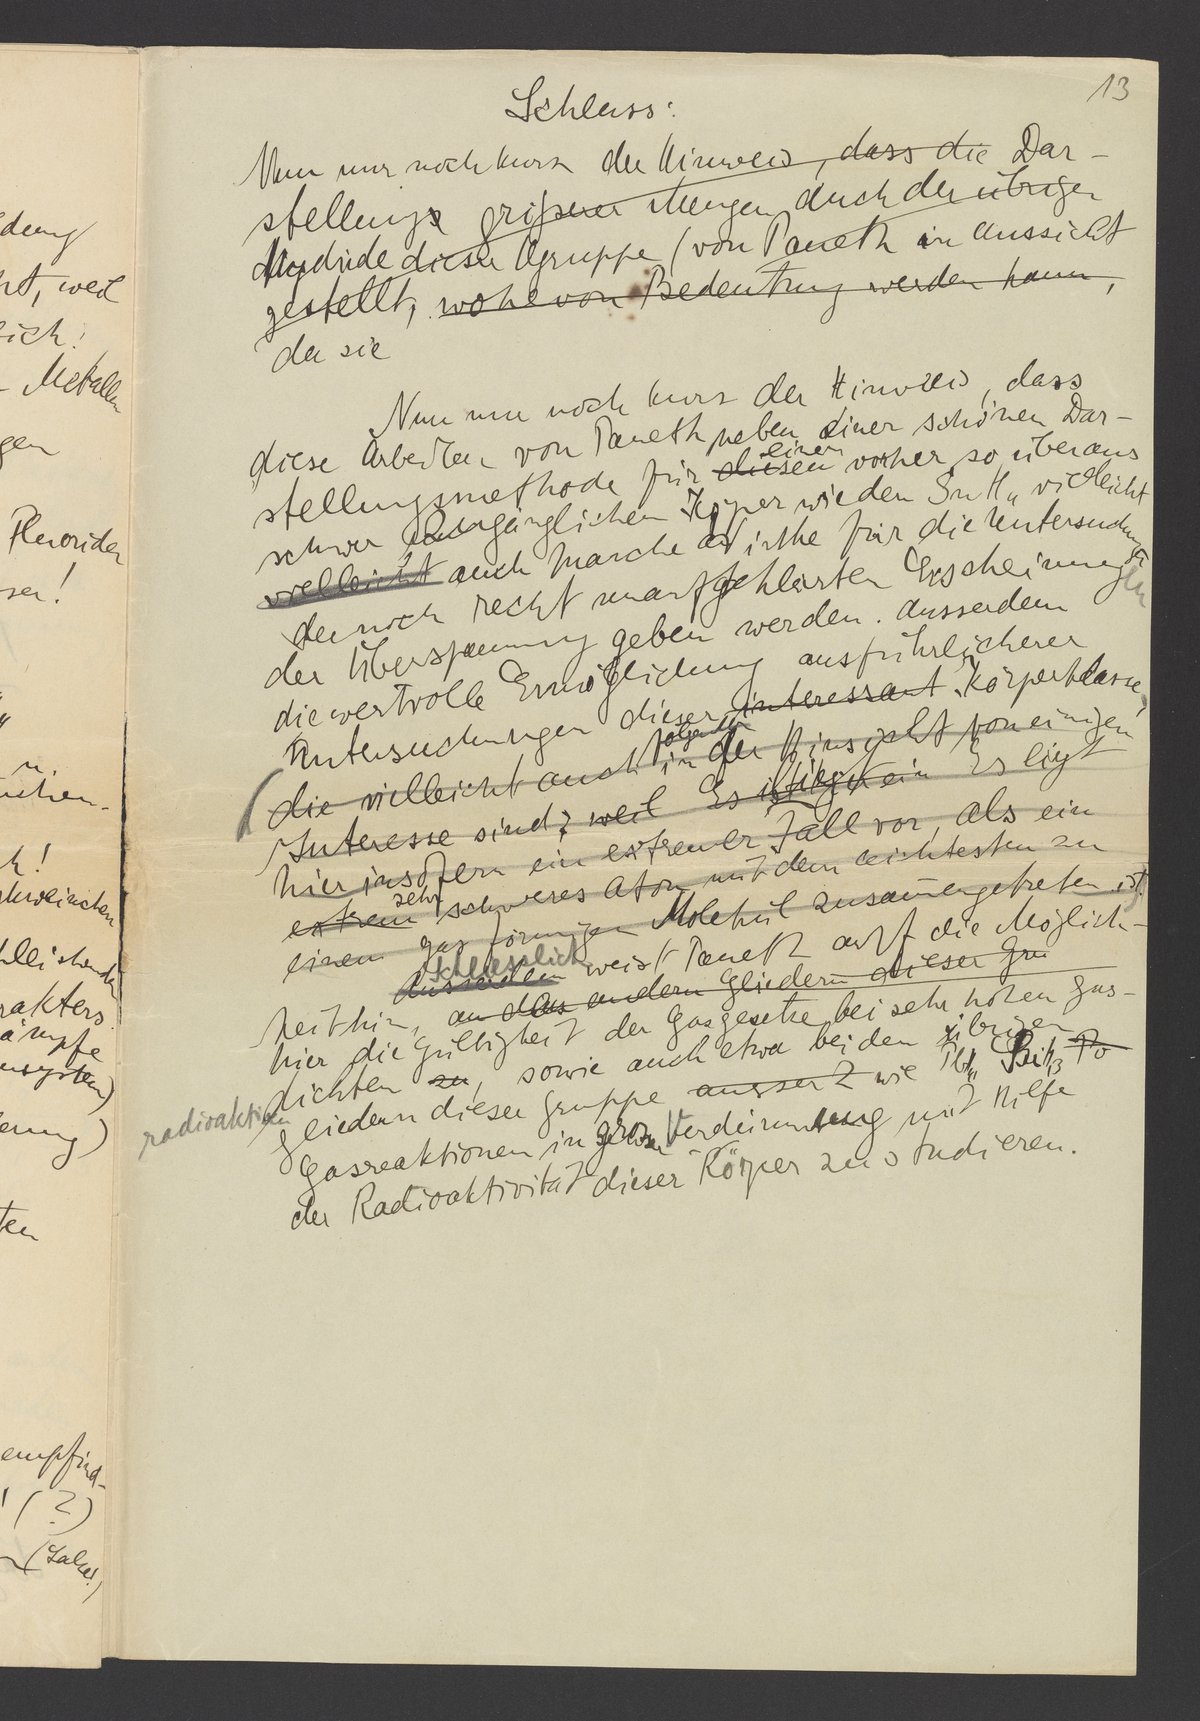 13
Schluss:
Nun nur noch kurz der Hinweis, dass die Dar-
stellung grösserer Mengen auch der übrigen
Hydride dieser Gruppe (von Paneth in Aussicht
gestellt, wohl von Bedeutung werden kann,
da sie
Nun nur noch kurz der Hinweis, dass
diese Arbeiten von Paneth neben einer schönen Dar-
stellungsmethode für diesen einen vorher so überaus
schwer zugänglichen Körper wie den SnH₄ vielleicht
vielleicht auch manche Winke für die Untersuchung
der noch recht unaufgeklärten Erscheinungen
der Überspannung geben werden. Ausserdem
die wertvolle Ermöglichung ausführlicherer
Untersuchungen dieser interessant. Körperklasse,
die vielleicht auch in folgender der Hinsicht von einigem
Interesse sind, weil Es liegt ein Es liegt
hier insofern ein extremer Fall vor, als ein
extrem sehr schweres Atom mit dem leichtesten zu
einem gasförmigen Molekül zusammengetreten ist.
Ausserdem Schliesslich weist Paneth auf die Möglich-
keit hin, an den andern Gliedern dieser Gru
hier die Gültigkeit der Gasgesetze bei sehr hohen Gas-
dichten zu, sowie auch etwa bei den übrigen
radioaktiven
Gliedern dieser Gruppe ausser Z wie PbH₄ BiH₃ Po
Gasreaktionen in grosser Verdünnung mit Hilfe
der Radioaktivität dieser Körper zu studieren.
dung
ht, weil
lich!
- Metallen
gen
Fluoriden
ser!
h!
rakters
ämpfe
nsystem)
erung)
ten
empfind-
! (?)